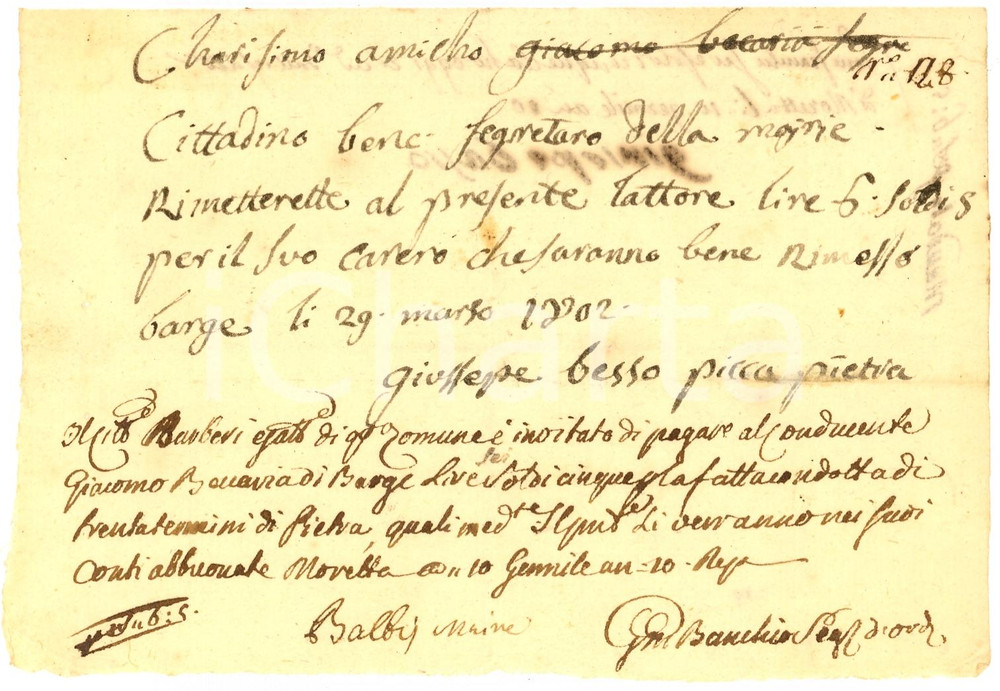 Charisimo amicho giacomo becaria segre
N.º 128.
Cittadino bene segretaro della mairie.
Rimetterette al presente lattore lire 6. soldi 5
per il suo carero che saranno bene Rimessi
barge li 29. marso 1802.
giussepe besso picca pietra
Il Citt.e Barberi esatt.e di q.ta Comune è invitato di pagare al Conducente
Giacomo Beccaria di Barge Lire sei soldi cinque p la fatta condotta di
trenta termini di Pietra, quali med.te Li verranno nei suoi
Conti abbuonate Moretta 10 Germile an- 10 Rep
L 6: 5.
Balbis Maire
Banchio Seg.
iCharta